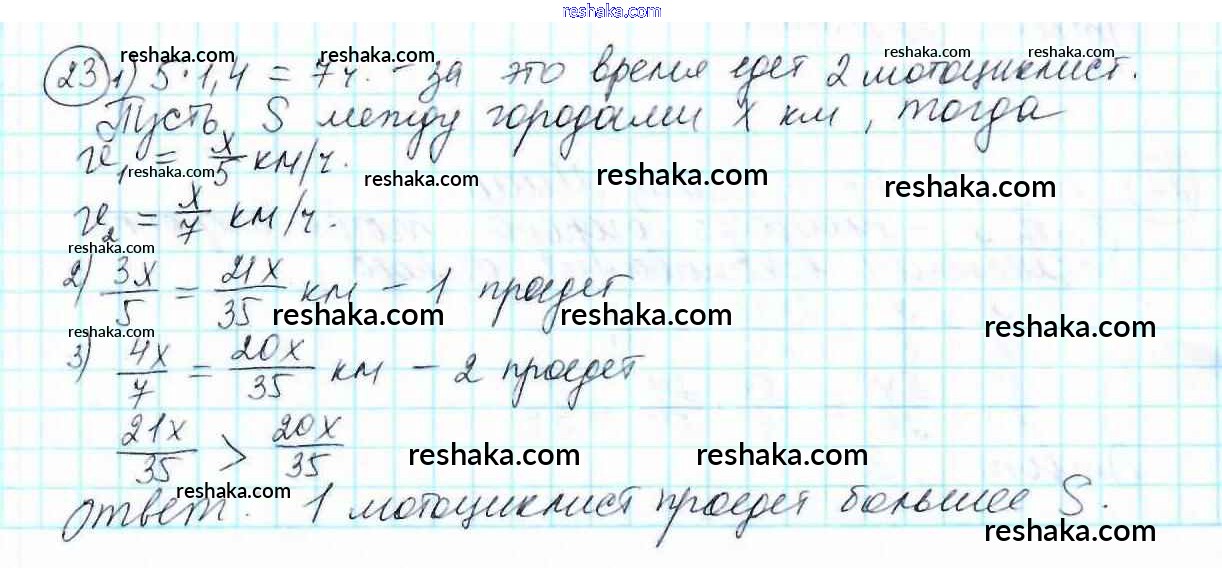 reshaka.com
23 1) 5·1,4 = 7ч. - за это время едет 2 мотоциклист.
Пусть S между городами x км, тогда
v₁ = x/5 км/ч.
v₂ = x/7 км/ч.
2) 3x/5 = 21x/35 км - 1 проедет
3) 4x/7 = 20x/35 км - 2 проедет
21x/35 > 20x/35
Ответ: 1 мотоциклист проедет большее S.
reshaka.com reshaka.com reshaka.com reshaka.com
reshaka.com reshaka.com reshaka.com reshaka.com
reshaka.com
reshaka.com reshaka.com reshaka.com
reshaka.com reshaka.com
reshaka.com reshaka.com